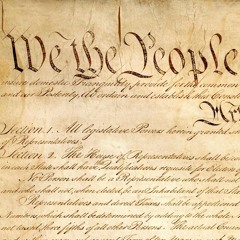 We the People
insure domestic Tranquility, provide for the common
and our Posterity, do ordain and establish this Const
Section. 1. All legislative Powers herein granted sh
of Representatives.
Section. 2. The House of Representatives shall be co
in each State shall have the Qualifications requisite for Electors
No Person shall be a Representative who shall not
and who shall not, when elected, be an Inhabitant of that State
Representatives and direct Taxes shall be apportioned
Numbers, which shall be determined by adding to the whole
not taxed, three fifths of all other Persons. The actual Enu